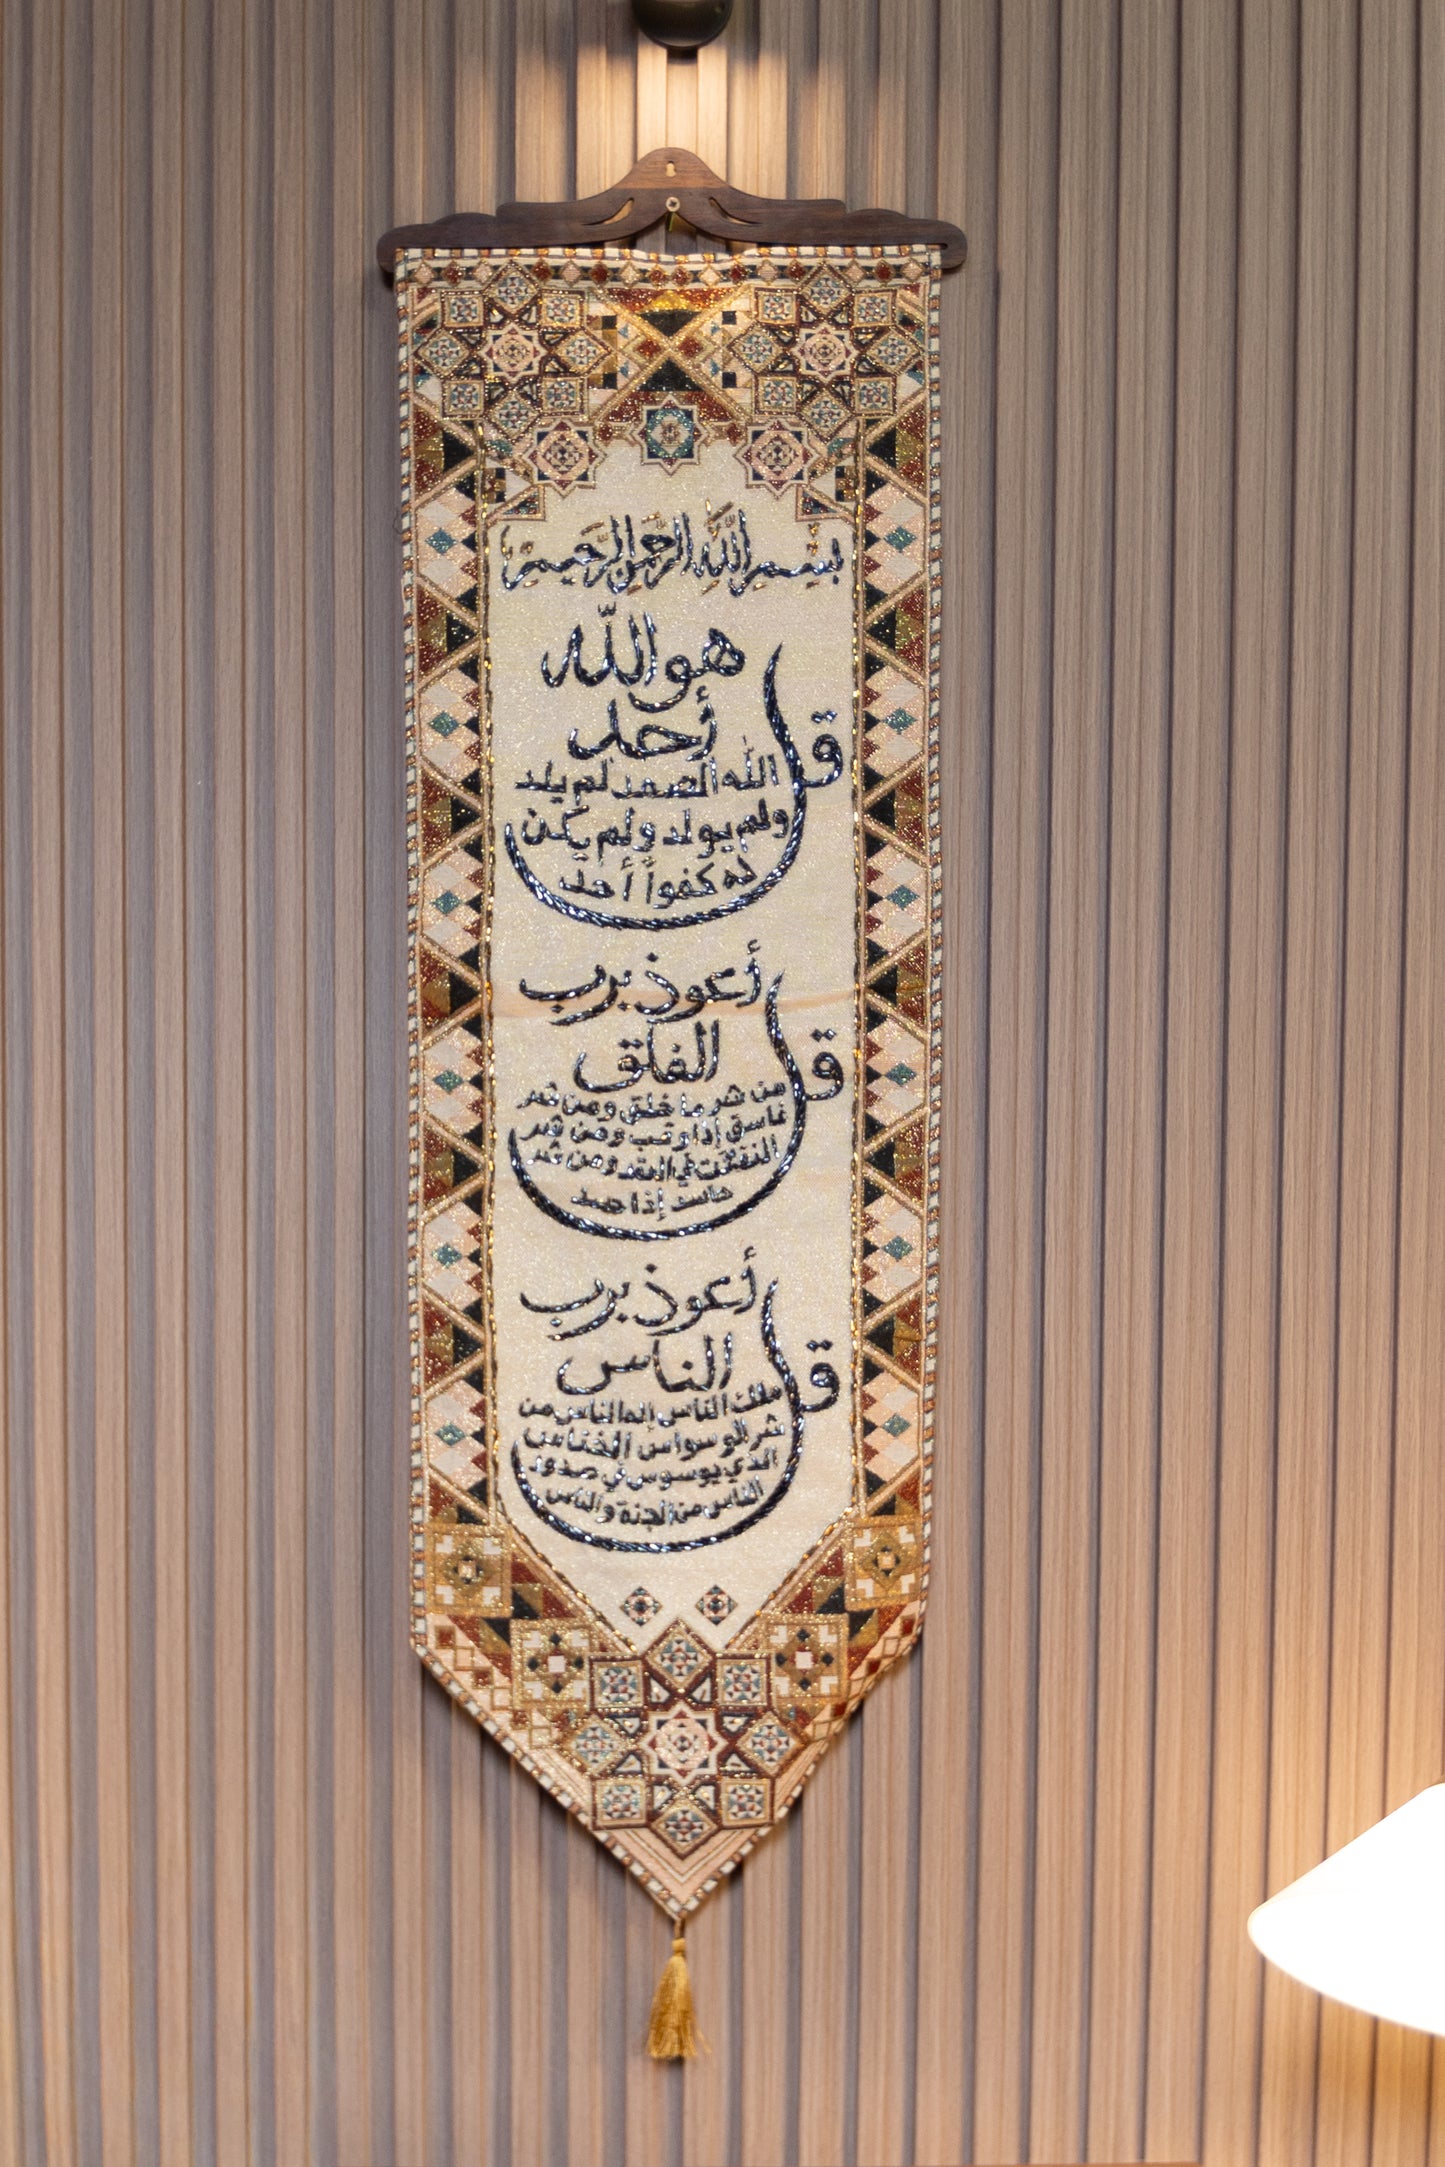 بِسْمِ اللَّهِ الرَّحْمَنِ الرَّحِيمِ
قل هو اللّه
أحد
اللّه الصمد لم يلد
ولم يولد ولم يكن
له كفواً أحدٌ
قل أعوذ برب
الفلق
من شر ما خلق ومن شر
غاسق إذا وقب ومن شر
النفثت في العقد ومن شر
حاسد إذا حسد
قل أعوذ برب
الناس
ملك الناس إله الناس من
شر الوسواس الخناس
الذي يوسوس في صدور
الناس من الجنة والناس